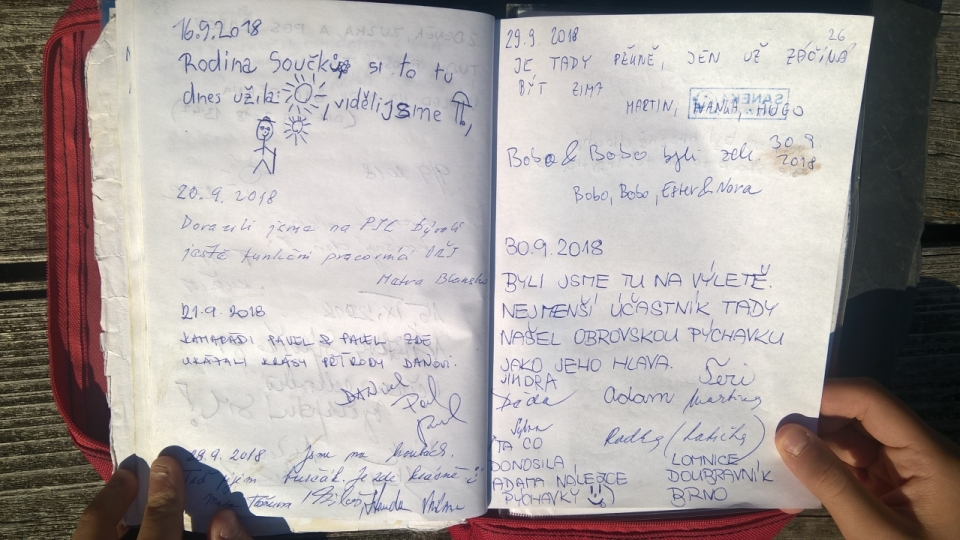 16.9.2018
Rodina Součků si to tu
dnes užila, viděli jsme
20. 9. 2018
Dorazili jsme na
ještě funkční
Matra Blansko
21.9.2018
KAMARÁDI PAVEL & PAVEL ZDE
UKÁZALI KRÁSY PŘÍRODY DANOVI.
DANIEL
28.9.2018 Jsme na houbách.
Je zde krásně
29.9 2018
26
JE TADY PĚKNĚ, JEN UŽ ZAČÍNÁ
BÝT ZIMA
MARTIN, HUGO
Bobo & Bobo byli zde 30 9
2018
Bobo, Bobo, Ester & Nora
30.9.2018
BYLI JSME TU NA VÝLETĚ.
NEJMENŠÍ ÚČASTNÍK TADY
NAŠEL OBROVSKOU PÝCHAVKU
JAKO JEHO HLAVA.
JINDRA
Adam Martina
TA CO
DONOSILA
ADAMA NALEZCE
PÝCHAVKY
Radka
LOMNICE
DOUBRAVNÍK
BRNO